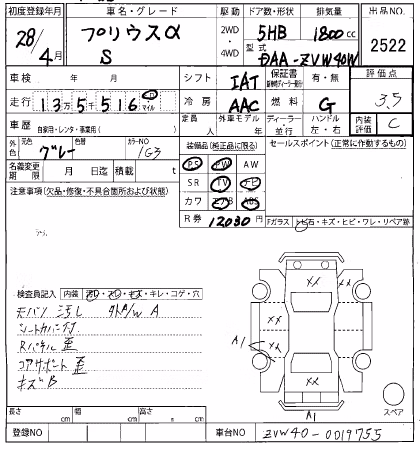 初度登録年月 車名・グレード 駆動 ドア数・形状 排気量 出品NO.
28/4月 プリウスα S 2WD 4WD 5HB 1800cc 2522
型式 DAA-ZVW40W
車検 年 月 シフト IAT 保証書 有・無 評価点
走行 13万5千516 km マイル 冷房 AAC 燃料 G 3.5
車歴 自家用・レンタ・事業用( ) 定員 人 外車モデル 年 ディーラー・並行 ハンドル 左・右 内装評価 C
外色 元色 グレー 色替 カラーNO 1G3 装備品(純正品に限る) セールスポイント(正常に動作するもの)
名義変更期限 月 日迄 積載 t PS PW AW
注意事項(欠品・修復・不具合箇所および状態) SR TV ナビ
カワ エアB ABS
R券 12030 円 Fガラス トビ石・キズ・ヒビ・ワレ・リペア跡
検査員記入 内装 ヨゴレ・スレ・キズ・キレ・コゲ・穴
モバリ 汚し 外P/W A
シートカバー付
Rパネル 歪
コアサポート 歪
キズB
XX
XX XX
A1
XX
A1
スペア
長さ cm 幅 cm 高さ cm
登録NO 車台NO ZVW40-0019755